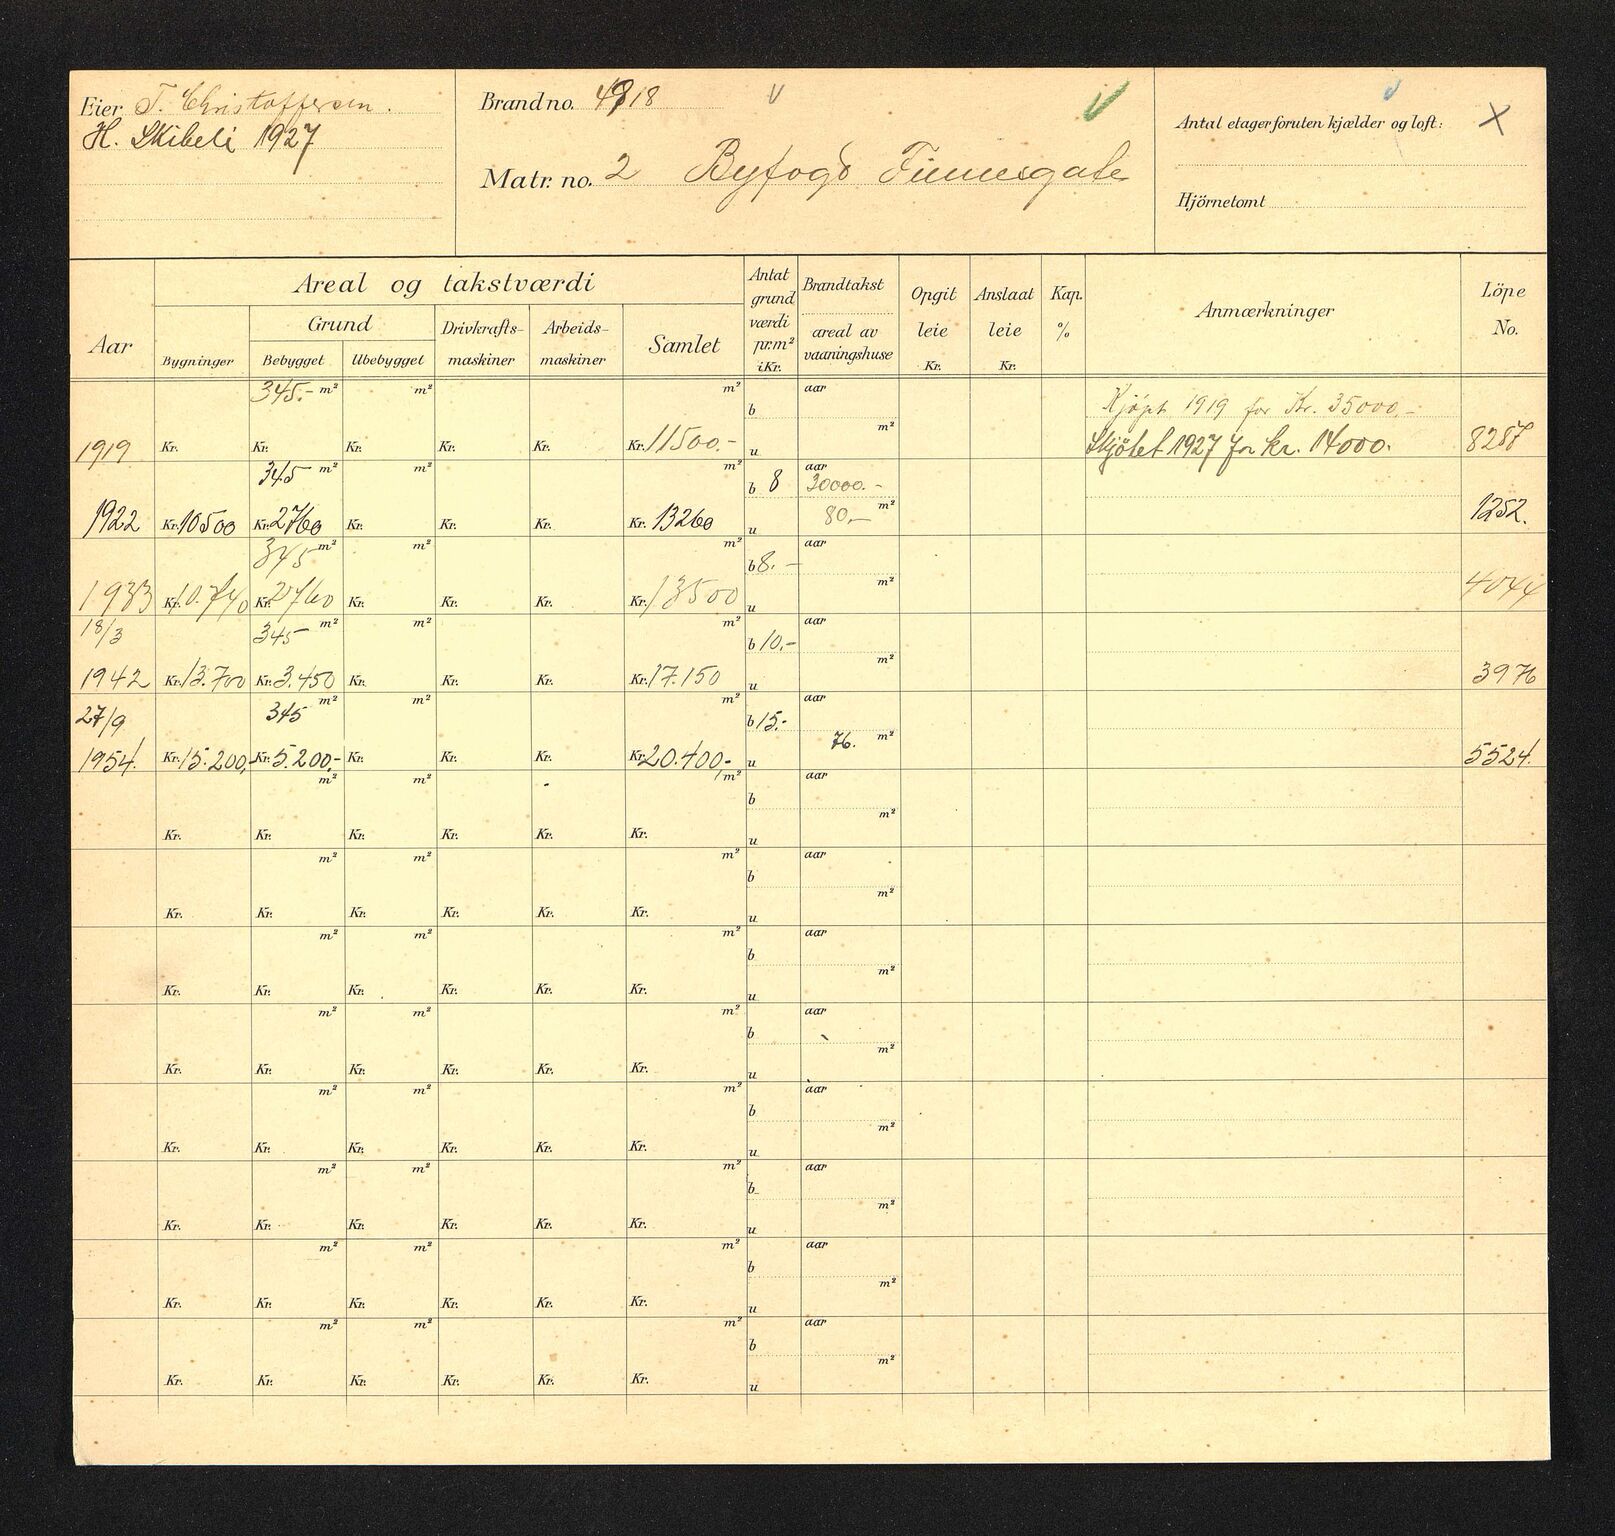 Eier T. Christoffersen.
H. Skibeli 1927
Brand no. 4918
Matr. no. 2 Byfogd Finnesgate
Antal etager foruten kjælder og loft: X
Hjörnetomt
Aar
Areal og takstværdi
Bygninger
Grund
Bebygget
Ubebygget
Drivkrafts-
maskiner
Arbeids-
maskiner
Samlet
Antat
grund
værdi
pr. m²
i Kr.
Brandtakst
areal av
vaaningshuse
Opgit
leie
Kr.
Anslaat
leie
Kr.
Kap.
%
Anmærkninger
Löpe
No.
345.- m² m² m² b aar Kjöpt 1919 for Kr. 35000,-
1919 Kr. Kr. Kr. Kr. Kr. Kr. 11500.- u m² Skjötet 1927 for kr. 14000. 8287
345 m² m² m² b 8 aar 30000.-
1922 Kr. 10500 Kr. 2760 Kr. Kr. Kr. Kr. 13260 u 80,- m² 1252.
345 m² m² m² b 8.- aar
1933 Kr. 10.740 Kr. 2760 Kr. Kr. Kr. Kr. 13500 u m² 4044
18/3 345 m² m² m² b 10,- aar
1942 Kr. 13.700 Kr. 3.450 Kr. Kr. Kr. Kr. 17.150 u m² 3976
27/9 345 m² m² m² b 15.- aar
1954. Kr. 15.200,- Kr. 5.200,- Kr. Kr. Kr. Kr. 20.400- u 76. m² 5524.
m² m² m² b aar
Kr. Kr. Kr. Kr. Kr. Kr. u m²
m² m² m² b aar
Kr. Kr. Kr. Kr. Kr. Kr. u m²
m² m² m² b aar
Kr. Kr. Kr. Kr. Kr. Kr. u m²
m² m² m² b aar
Kr. Kr. Kr. Kr. Kr. Kr. u m²
m² m² m² b aar
Kr. Kr. Kr. Kr. Kr. Kr. u m²
m² m² m² b aar
Kr. Kr. Kr. Kr. Kr. Kr. u m²
m² m² m² b aar
Kr. Kr. Kr. Kr. Kr. Kr. u m²
m² m² m² b aar
Kr. Kr. Kr. Kr. Kr. Kr. u m²